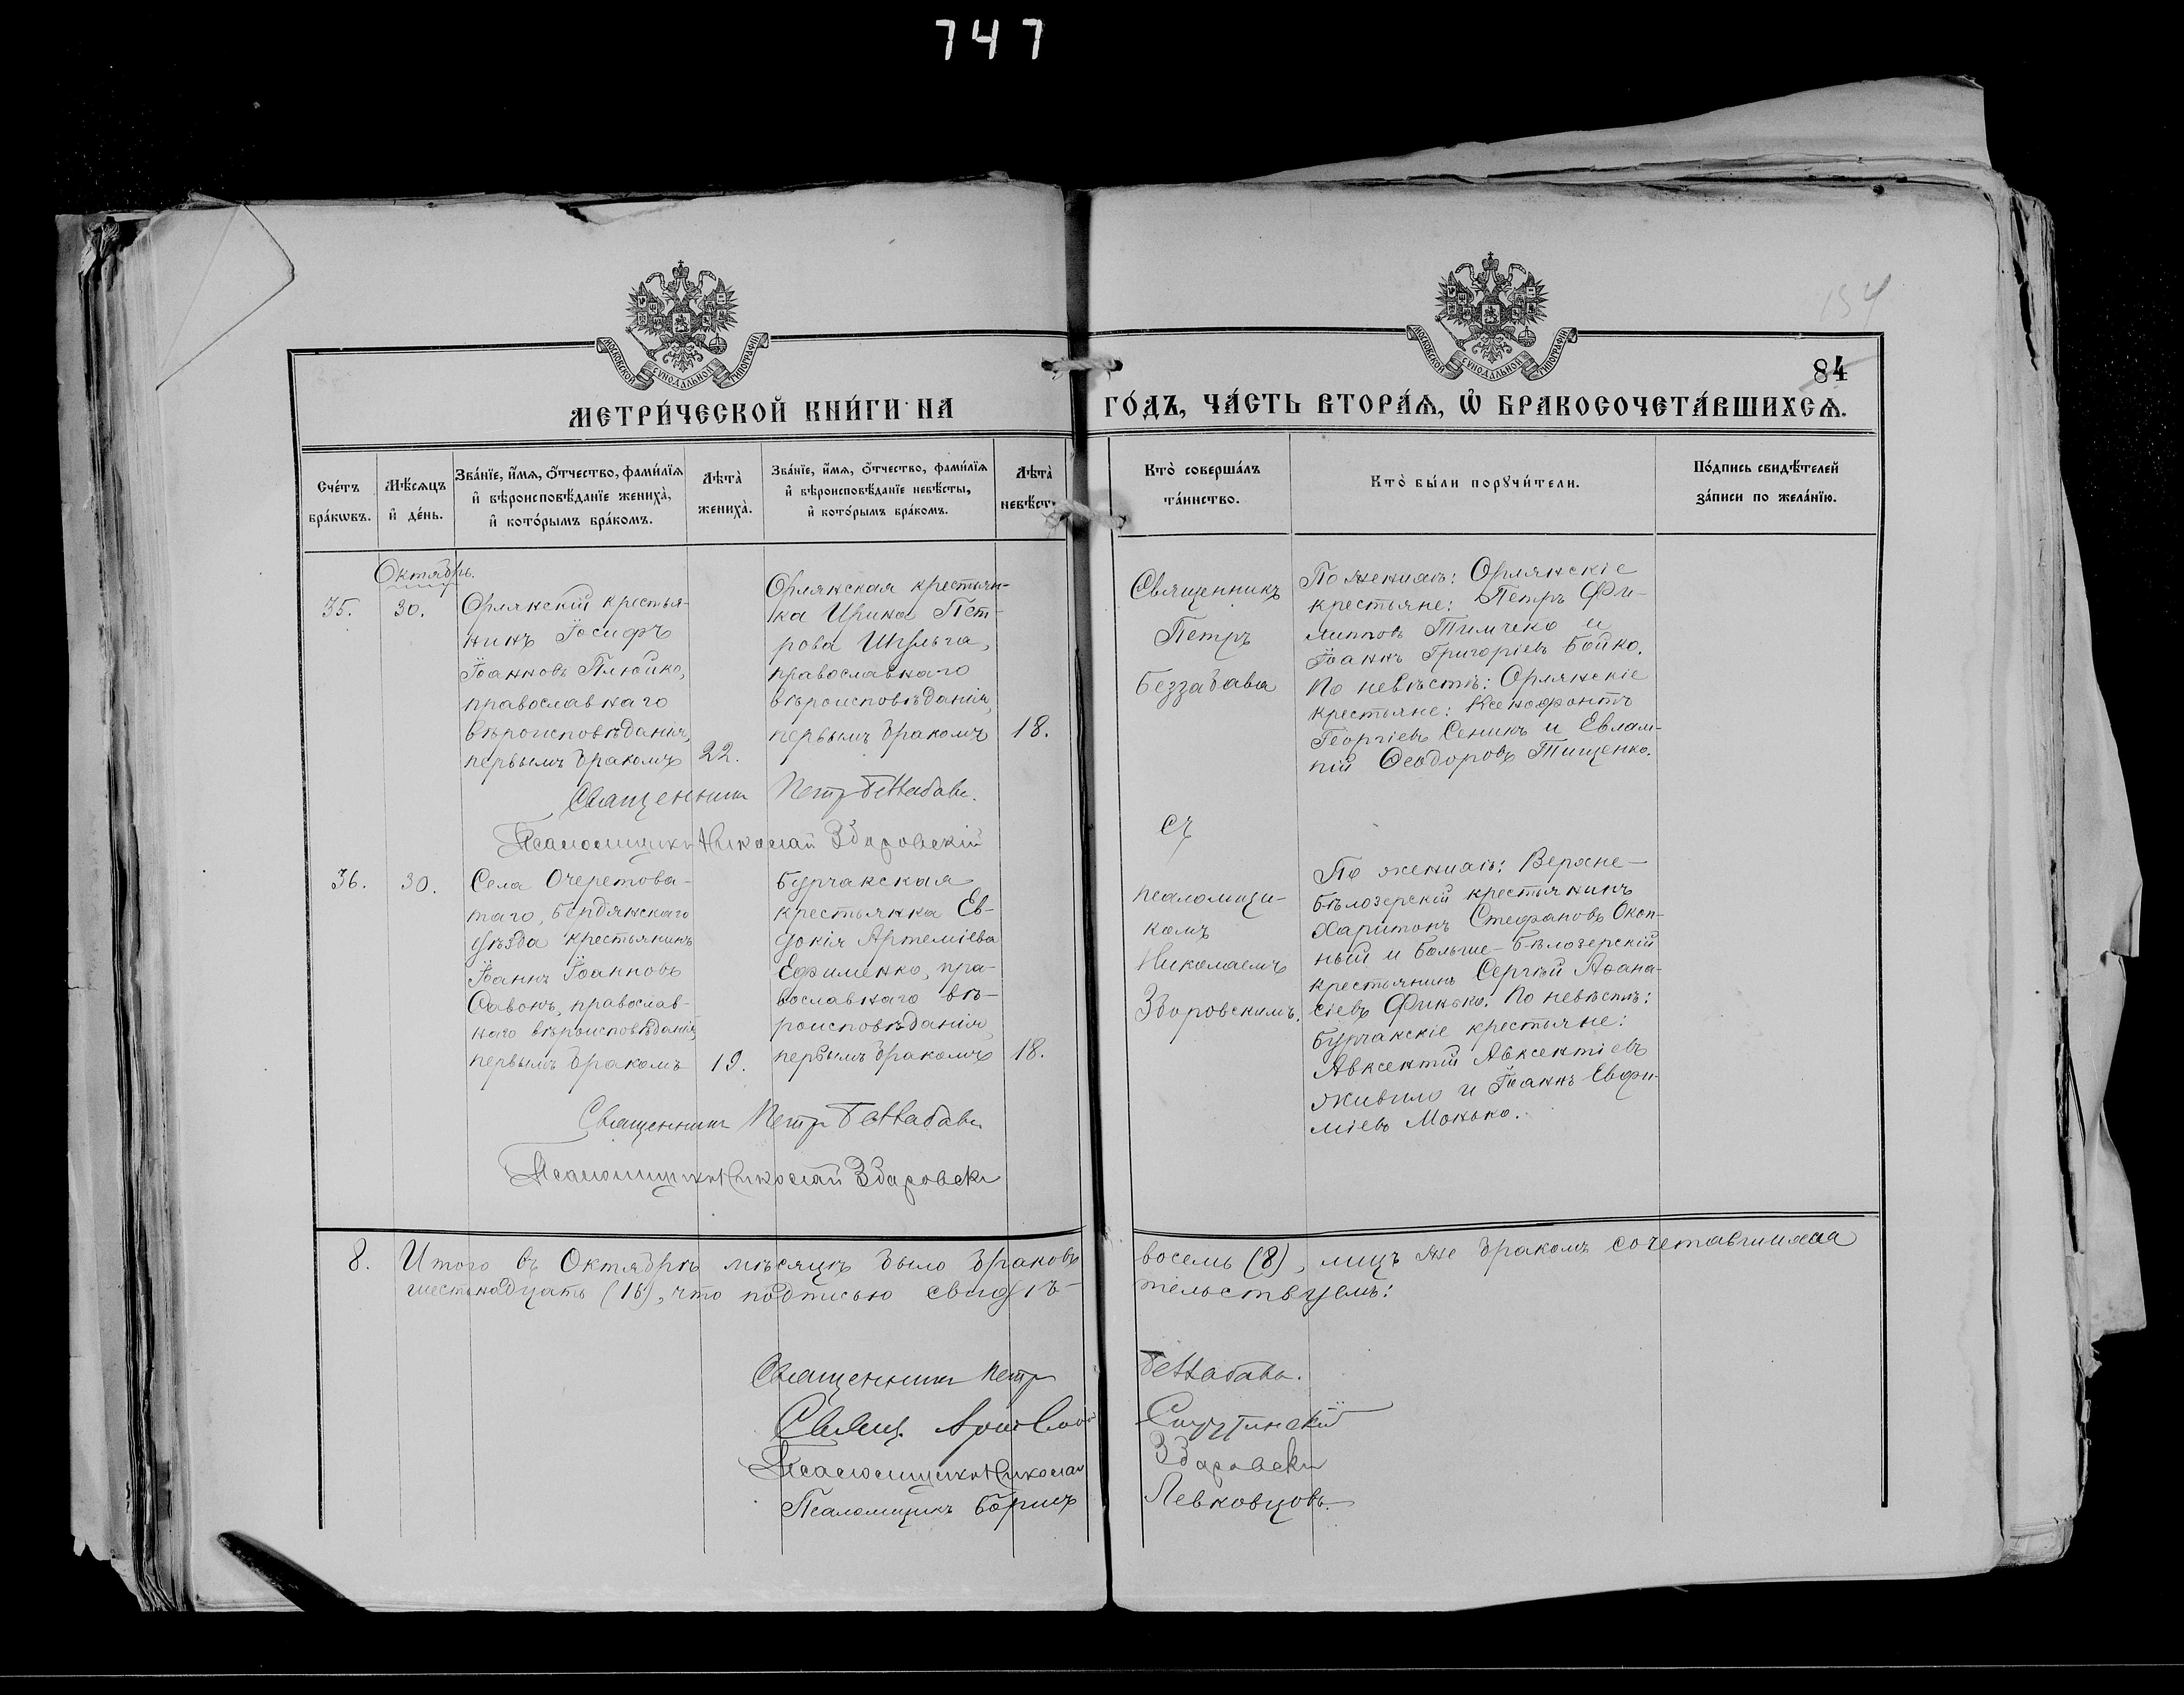 747
154
84
МОСКОВСКОЙ СѴНОДАЛЬНОЙ ТИПОГРАФІИ
МОСКОВСКОЙ СѴНОДАЛЬНОЙ ТИПОГРАФІИ
МЕТРИ́ЧЕСКОЙ КНИ́ГИ НА ГО́ДЪ, ЧА́СТЬ ВТОРА́Ѧ, Ѽ БРАКОСОЧЕТА́ВШИХСѦ.
Сче́тъ
бра́кѡвъ.
Мѣ́сѧцъ
и҆ де́нь.
Зва́нїе, и҆́мѧ, ѻ҆́тчество, фами́лїѧ
и҆ вѣроисповѣ́данїе жениха̀,
и҆ кото́рымъ бра́комъ.
Лѣта̀
жениха̀.
Зва́нїе, и҆́мѧ, ѻ҆́тчество, фами́лїѧ
и҆ вѣроисповѣ́данїе невѣ́сты,
и҆ кото́рымъ бра́комъ.
Лѣта̀
невѣ́сты
Кто̀ соверша́лъ
та́инство.
Кто̀ бы́ли порꙋчи́тели.
По́дпись свидѣ́телей
за́писи по жела́нїю.
Октябрь.
35.
30.
Орлянскій крестья-
нинъ Іосифъ
Іоанновъ Плюйко,
православнаго
вѣроисповѣданія,
первымъ бракомъ
22.
Орлянская крестьян-
ка Ирина Пет-
рова Шульга,
православнаго
вѣроисповѣданія,
первымъ бракомъ
18.
Священникъ
Петръ
Беззабава
По женихѣ: Орлянскіе
крестьяне: Петръ Фи-
липповъ Тимченко и
Іоаннъ Григоріевъ Бойко.
По невѣстѣ: Орлянскіе
крестьяне: Ксенофонтъ
Георгіевъ Сеникъ и Евлам-
пій Ѳеодоровъ Тищенко.
Священникъ Петръ Беззабава.
Псаломщикъ Николай Здоровскій
съ
36.
30.
Села Очеретова-
таго, Бердянскаго
уѣзда крестьянинъ
Іоаннъ Іоанновъ
Савонъ, православ-
наго вѣроисповѣданія,
первымъ бракомъ
19.
Бурчакская
крестьянка Ев-
докія Артеміева
Ефименко, пра-
вославнаго вѣ-
роисповѣданія,
первымъ бракомъ
18.
псаломщи-
комъ
Николаемъ
Здоровскимъ.
По женихѣ: Верхне-
бѣлозерскій крестьянинъ
Харитонъ Стефановъ Окоп-
ный и Больше-Бѣлозерскій
крестьянинъ Сергѣй Аѳана-
сіевъ Финько. По невѣстѣ:
Бурчакскіе крестьяне:
Авксентій Авксентіевъ
Живило и Іоаннъ Евфи-
міевъ Монько.
Священникъ Петръ Беззабава
Псаломщикъ Николай Здоровскій
8. Итого въ Октябрѣ мѣсяцѣ было браковъ восемь (8), лицъ же бракомъ сочетавшихся
шестьнадцать (16), что подписью свидѣ-тельствуемъ:
Священникъ Петръ Беззабава.
Псаломщикъ Николай Здоровскій
Псаломщикъ Борисъ Левковцовъ.